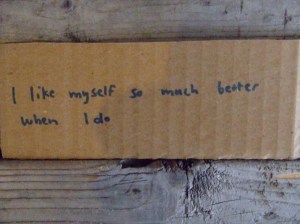 I like myself so much better
when I do